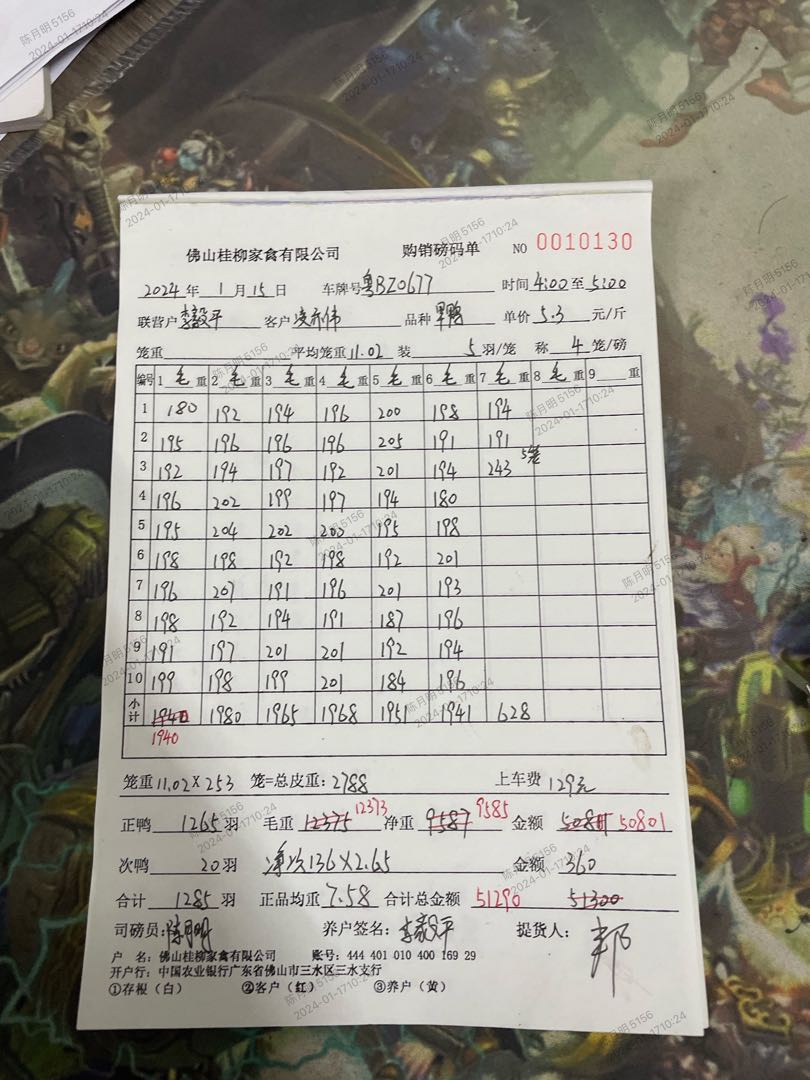 佛山桂柳家禽有限公司 购销磅码单 NO 0010130
2024 年 1 月 15 日 车牌号 粤BZ0677 时间 4:00 至 5:00
联营户 李毅平 客户 凌亦伟 品种 单价 5.3 元/斤
笼重 平均笼重 11.02 装 5 羽/笼 称 4 笼/磅
编号 1 毛 重 2 毛 重 3 毛 重 4 毛 重 5 毛 重 6 毛 重 7 毛 重 8 毛 重 9 重
1 180 192 194 196 200 198 194
2 195 196 196 196 205 191 191
3 192 194 197 192 201 194 243 5笼
4 196 202 199 197 194 180
5 195 204 202 200 195 198
6 198 198 192 198 192 201
7 196 207 191 196 201 193
8 198 192 194 191 187 196
9 191 197 201 201 192 194
10 199 198 199 201 184 196
小计 1980 1965 1968 1951 1941 628
1940
笼重 11.02 X 253 笼=总皮重: 2788 上车费 129元
正鸭 1265 羽 毛重 12375 12373 净重 9587 9585 金额 50801
次鸭 20 羽 净次136 X 2.65 金额 360
合计 1285 羽 正品均重 7.58 合计总金额 51290 51300
司磅员: 陈月明 养户签名: 李毅平 提货人: 邦
户 名: 佛山桂柳家禽有限公司 账号: 444 401 010 400 169 29
开户行: 中国农业银行广东省佛山市三水区三水支行
①存根（白） ②客户（红） ③养户（黄）
陈月明 5156
2024-01-17 10:24